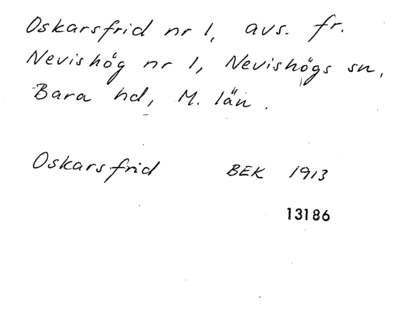 Oskarsfrid nr 1, avs. fr.
Nevishög nr 1, Nevishögs sn,
Bara hd, M. län.
Oskarsfrid BEK 1913
13186